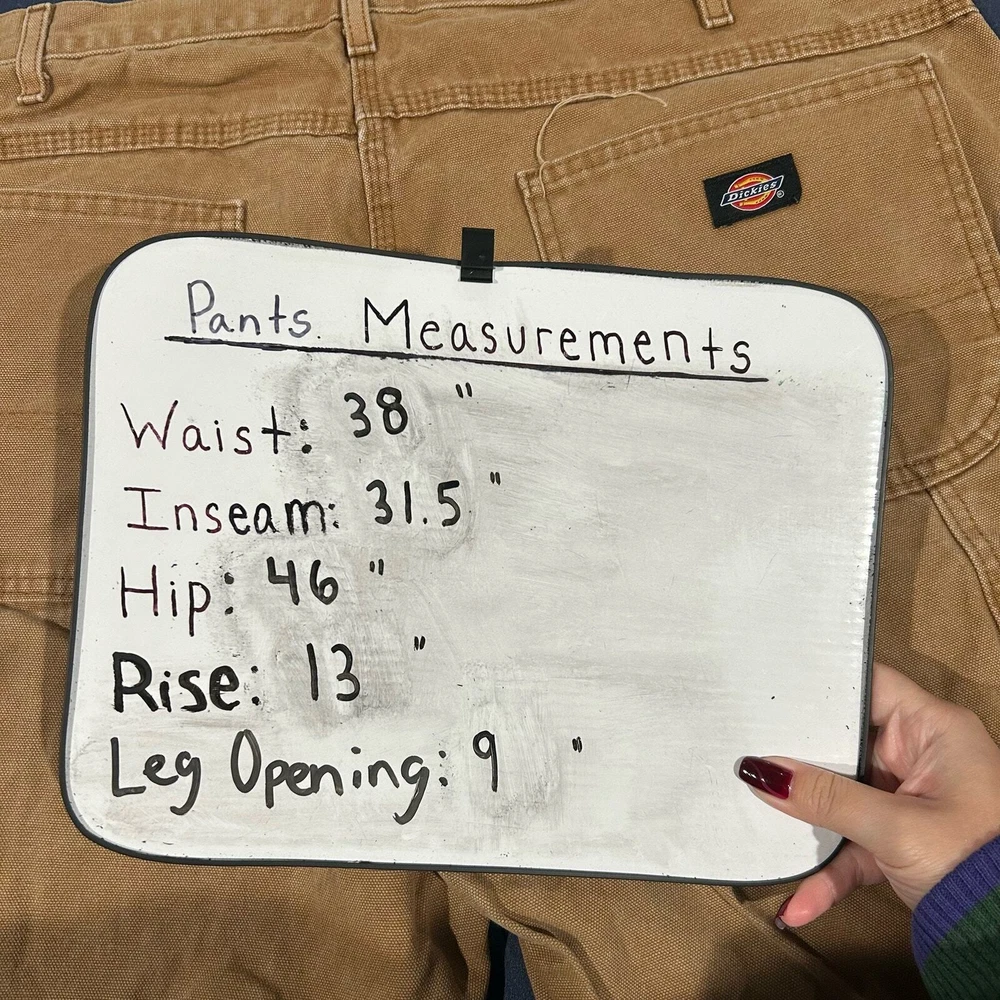 Dickies
Pants Measurements
Waist: 38 "
Inseam: 31.5 "
Hip: 46 "
Rise: 13 "
Leg Opening: 9 "